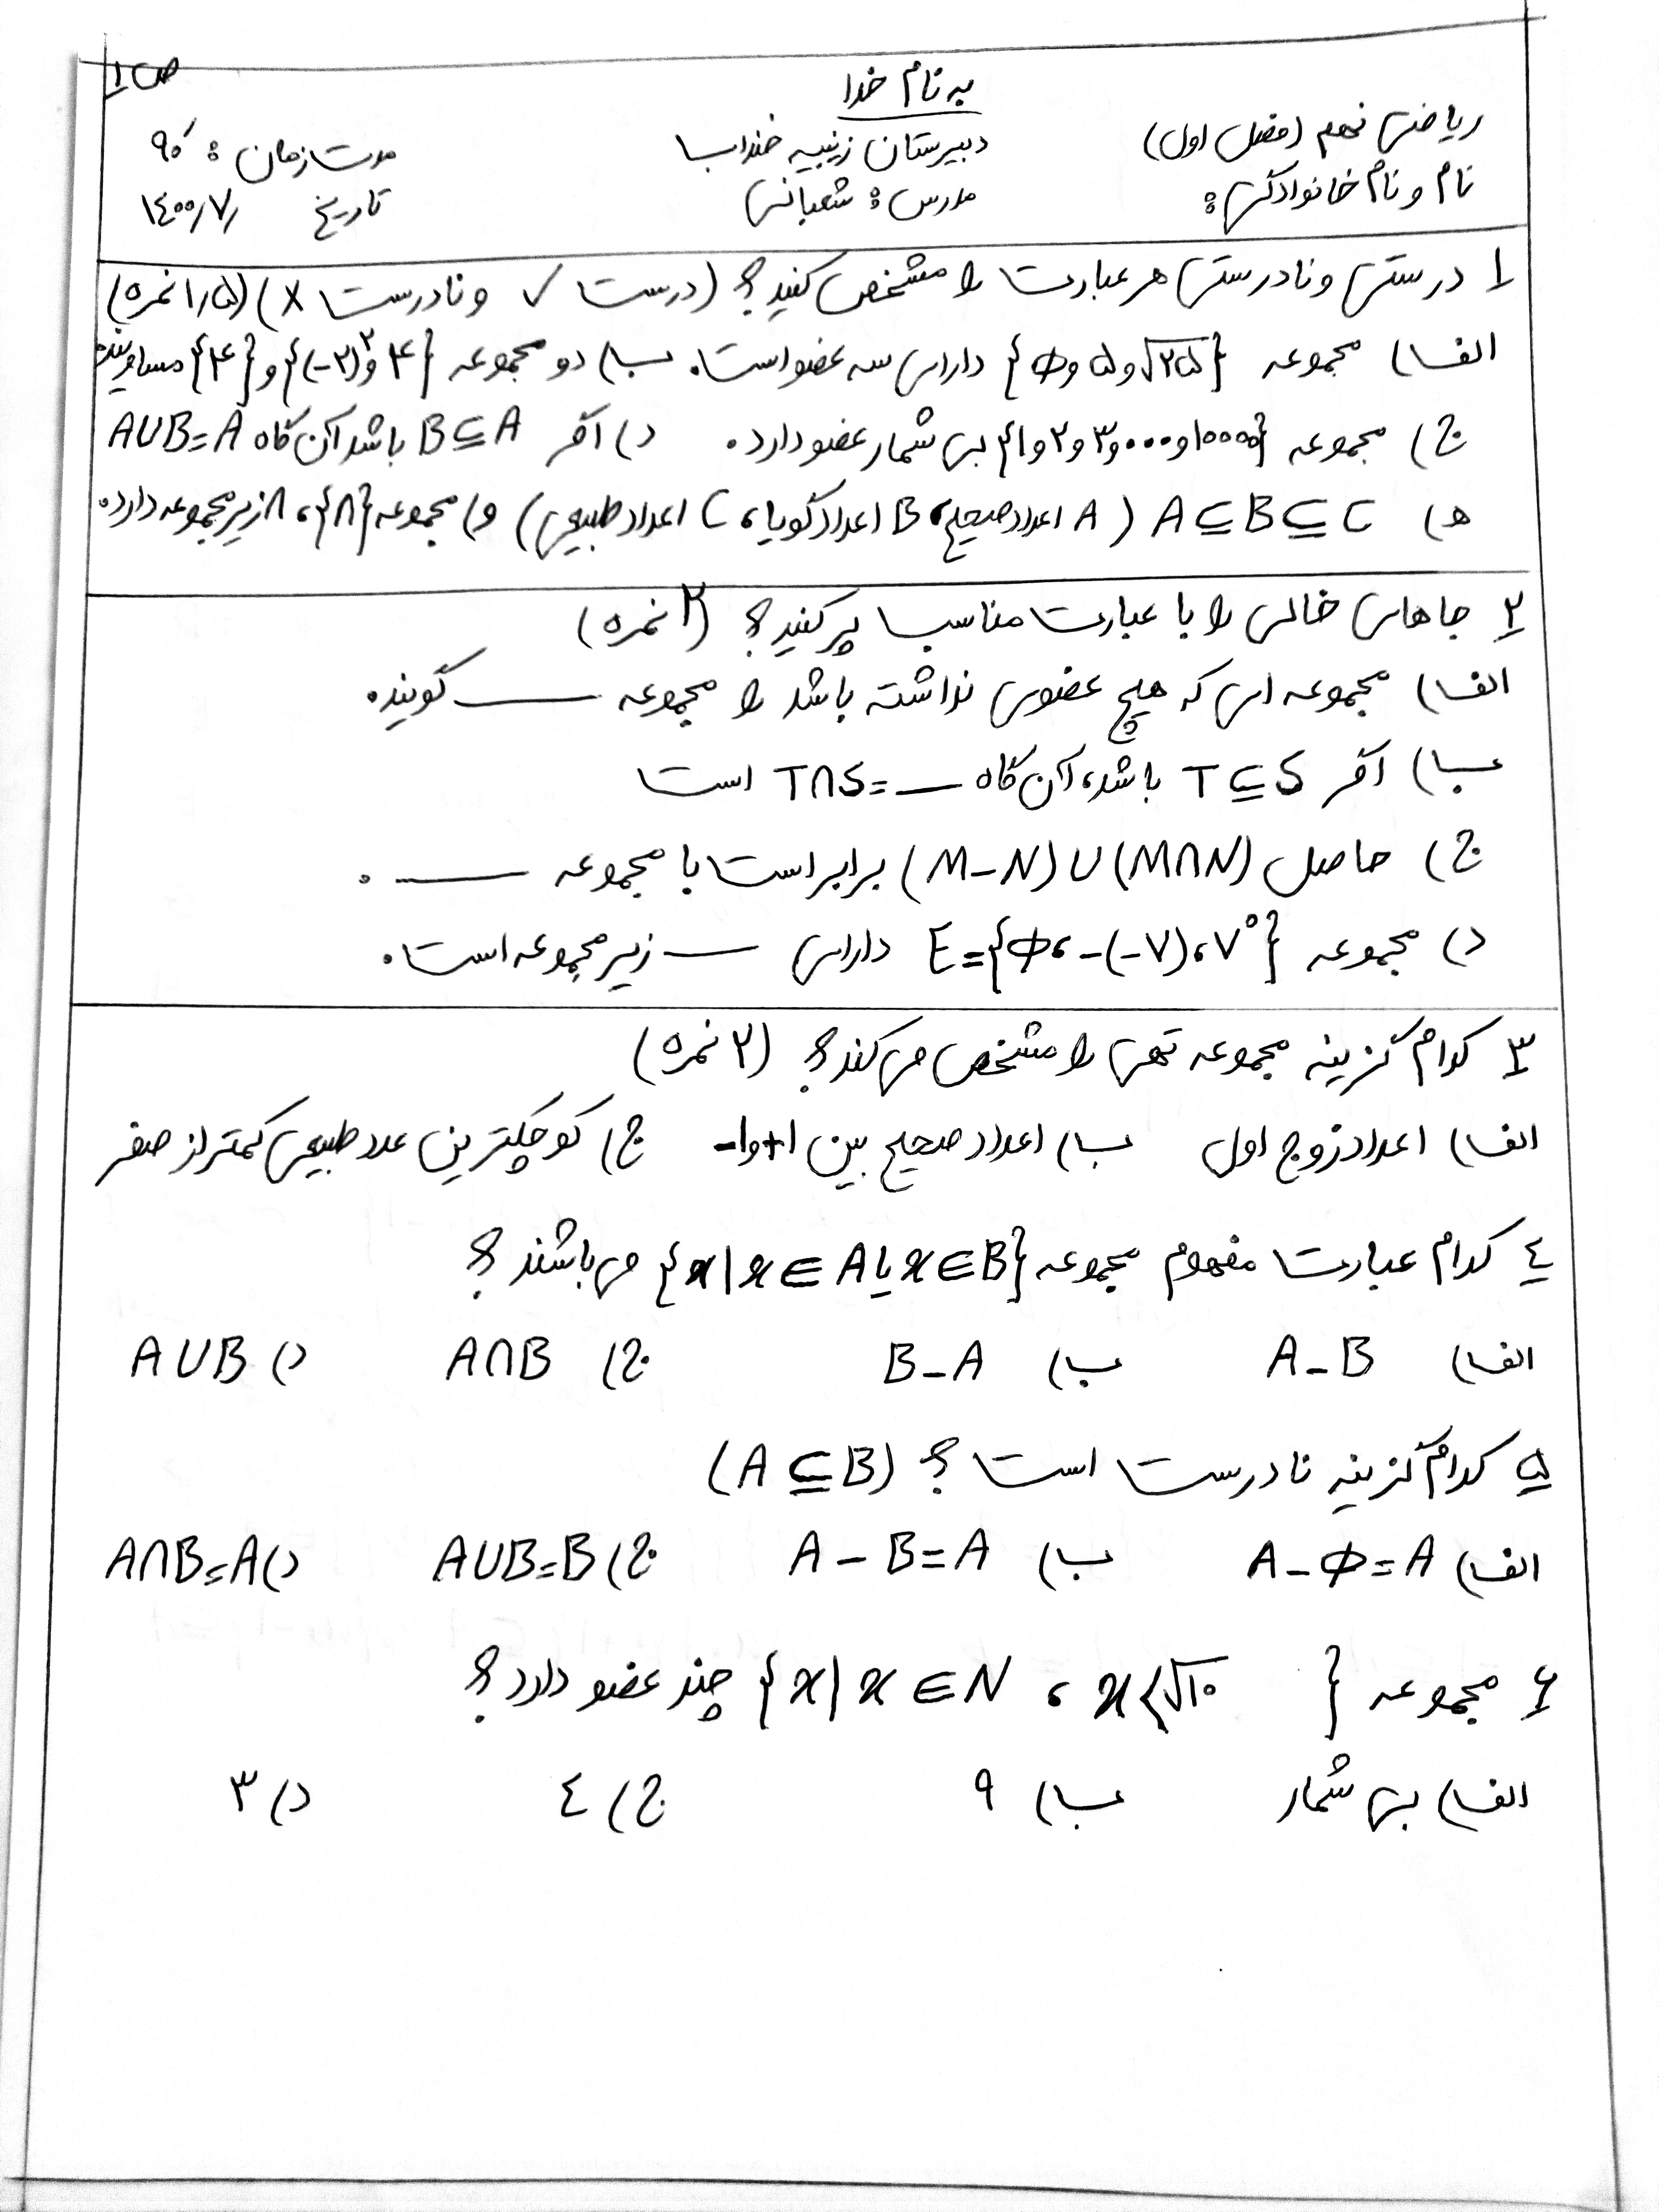 ص ۱
به نام خدا
ریاضی نهم (فصل اول) دبیرستان زینبیه خنداب مدت زمان : ۹۰′
نام و نام خانوادگی : مدرس : شعبانی تاریخ ۱۴۰۰/۷/
۱ درستی و نادرستی هر عبارت را مشخص کنید؟ (درست ✓ و نادرست ×) (۱/۵ نمره)
الف) مجموعه {√۲۵ و ۵ و Φ} دارای سه عضو است. ب) دو مجموعه {۴ و (-۲)^۲} و {۴} مساویند
ج) مجموعه {۱ و ۲ و ۳ و ... و ۱۰۰۰۰} بی شمار عضو دارد. د) اگر B⊆A باشد آن گاه A∪B=A
ه) A⊆B⊆C (A اعداد صحیح، B اعداد گویا، C اعداد طبیعی) و) مجموعه {۸}، ۸ زیرمجموعه دارد.
۲ جاهای خالی را با عبارت مناسب پر کنید؟ (۲ نمره)
الف) مجموعه ای که هیچ عضوی نداشته باشد را مجموعه ــــ گویند.
ب) اگر T⊆S باشد، آن گاه ــــ=T∩S است
ج) حاصل (M-N)∪(M∩N) برابر است با مجموعه ــــ .
د) مجموعه E={Φ، -(-۷)، ۷^۰} دارای ــــ زیرمجموعه است.
۳ کدام گزینه مجموعه تهی را مشخص می کند؟ (۲ نمره)
الف) اعداد زوج اول ب) اعداد صحیح بین ۱+ و ۱- ج) کوچکترین عدد طبیعی کمتر از صفر
٤ کدام عبارت مفهوم مجموعه {x|x∈A یا x∈B} می باشند؟
الف) A-B ب) B-A ج) A∩B د) A∪B
۵ کدام گزینه نادرست است؟ (A⊆B)
الف) A-Φ=A ب) A-B=A ج) A∪B=B د) A∩B=A
۶ مجموعه {x|x∈N ، x<√۱۰} چند عضو دارد؟
الف) بی شمار ب) ۹ ج) ٤ د) ۳